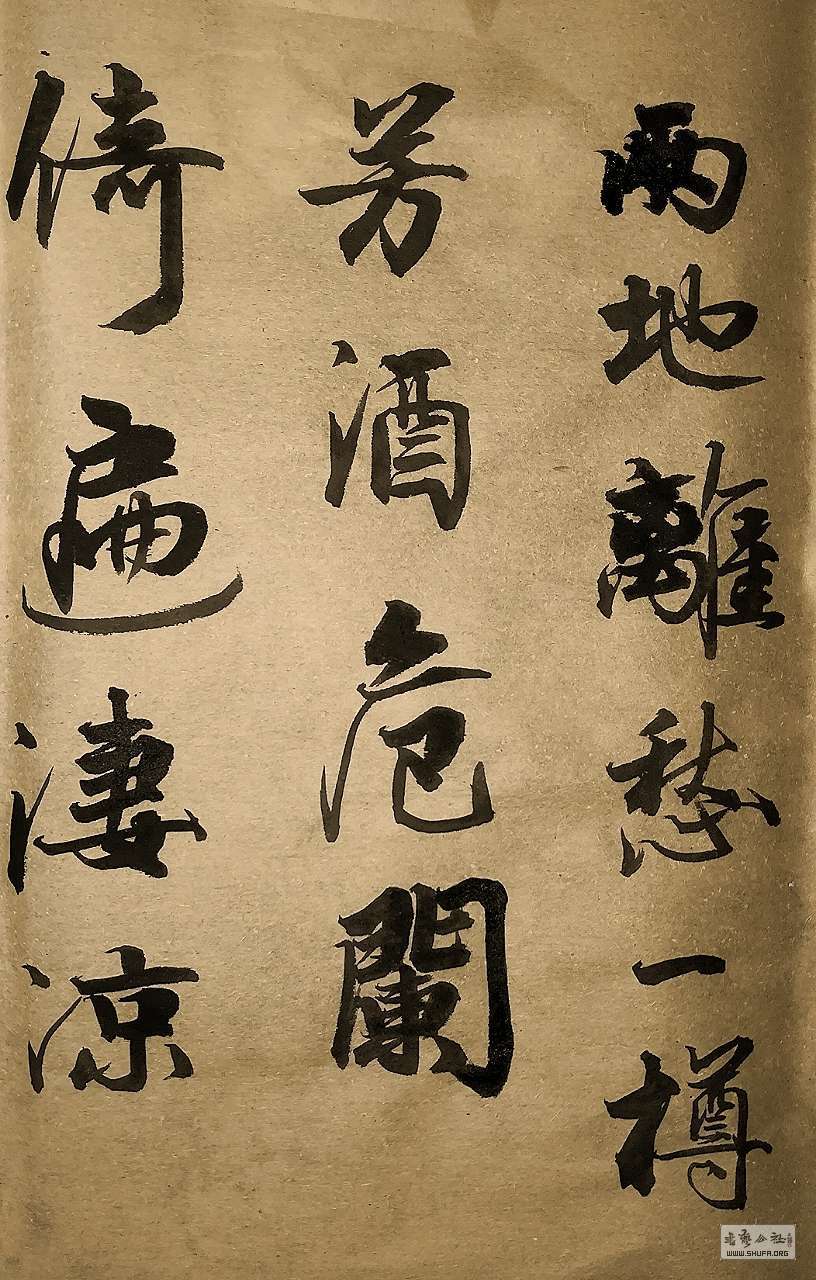 兩地離愁一樽
芳酒危闌
倚遍淒涼
書藝公社
WWW.SHUFA.ORG